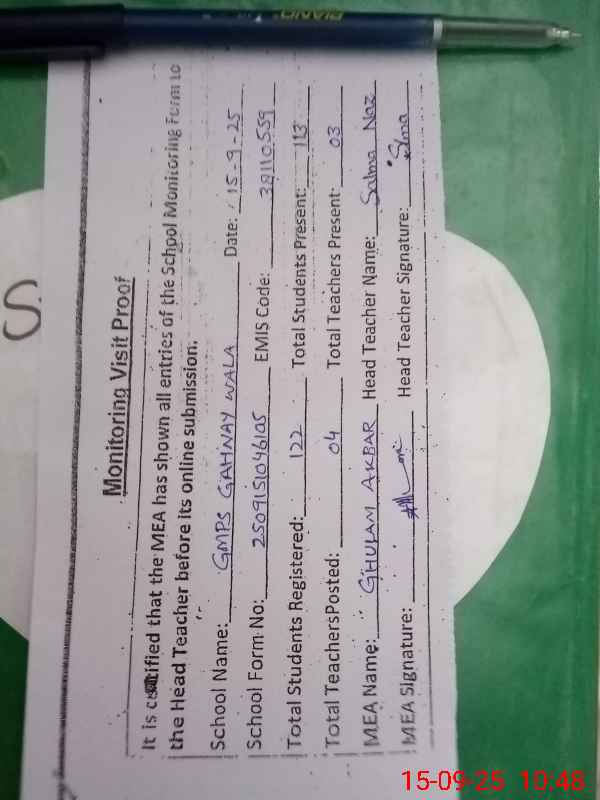 PIANO
S.
Monitoring Visit Proof
It is certified that the MEA has shown all entries of the School Monitoring Form to
the Head Teacher before its online submission.
School Name: GMPS GAHNAY WALA Date: 15-9-25
School Form No: 2509151046105 EMIS Code: 38110559
Total Students Registered: 122 Total Students Present: 113
Total TeachersPosted: 04 Total Teachers Present: 03
MEA Name: GHULAM AKBAR Head Teacher Name: Salma Naz
MEA Signature: Head Teacher Signature: Slma
15-09-25 10:48